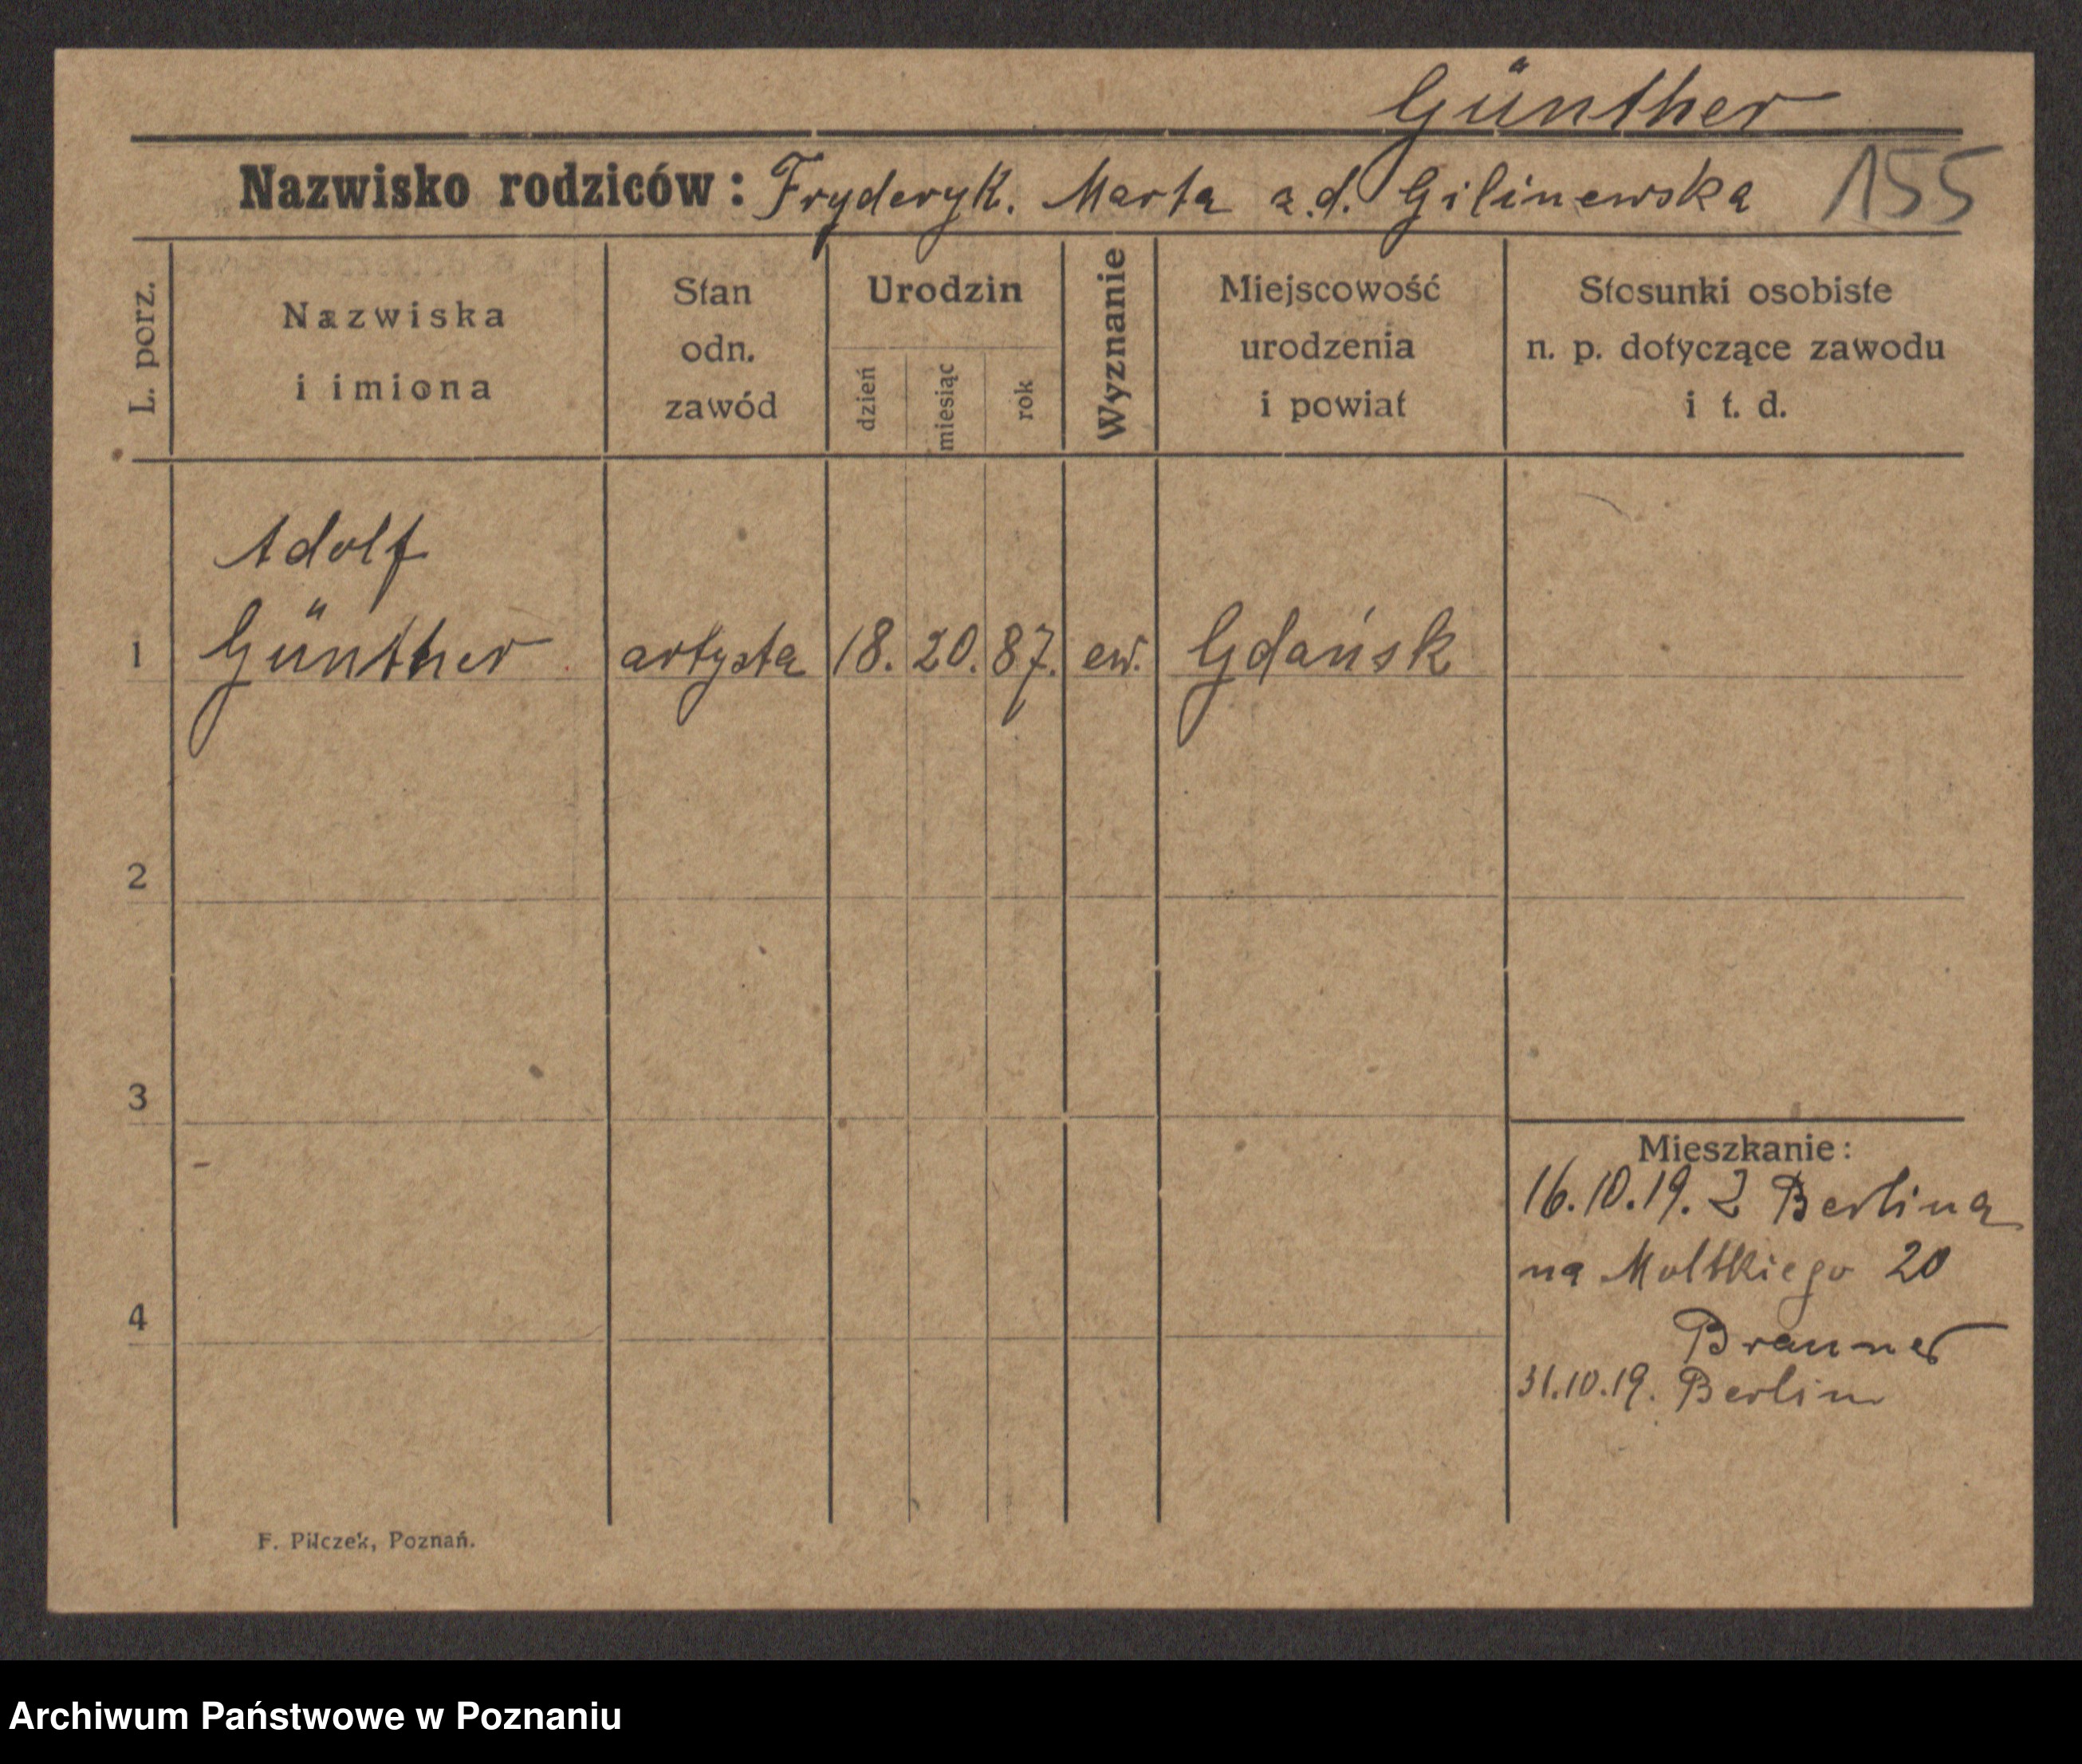 Günther
Nazwisko rodziców: Fryderyk. Marta z.d. Gilinewska 155
L. porz.
Nazwiska
i imiona
Stan
odn.
zawód
Urodzin
dzień
miesiąc
rok
Wyznanie
Miejscowość
urodzenia
i powiat
Stosunki osobiste
n. p. dotyczące zawodu
i t. d.
Adolf
1 Günther artysta 18. 20. 87. ew. Gdańsk
2
3
Mieszkanie:
16.10.19. Z Berlina
na Moltkiego 20
4
Brauner
31.10.19. Berlin
F. Pilczek, Poznań.
Archiwum Państwowe w Poznaniu